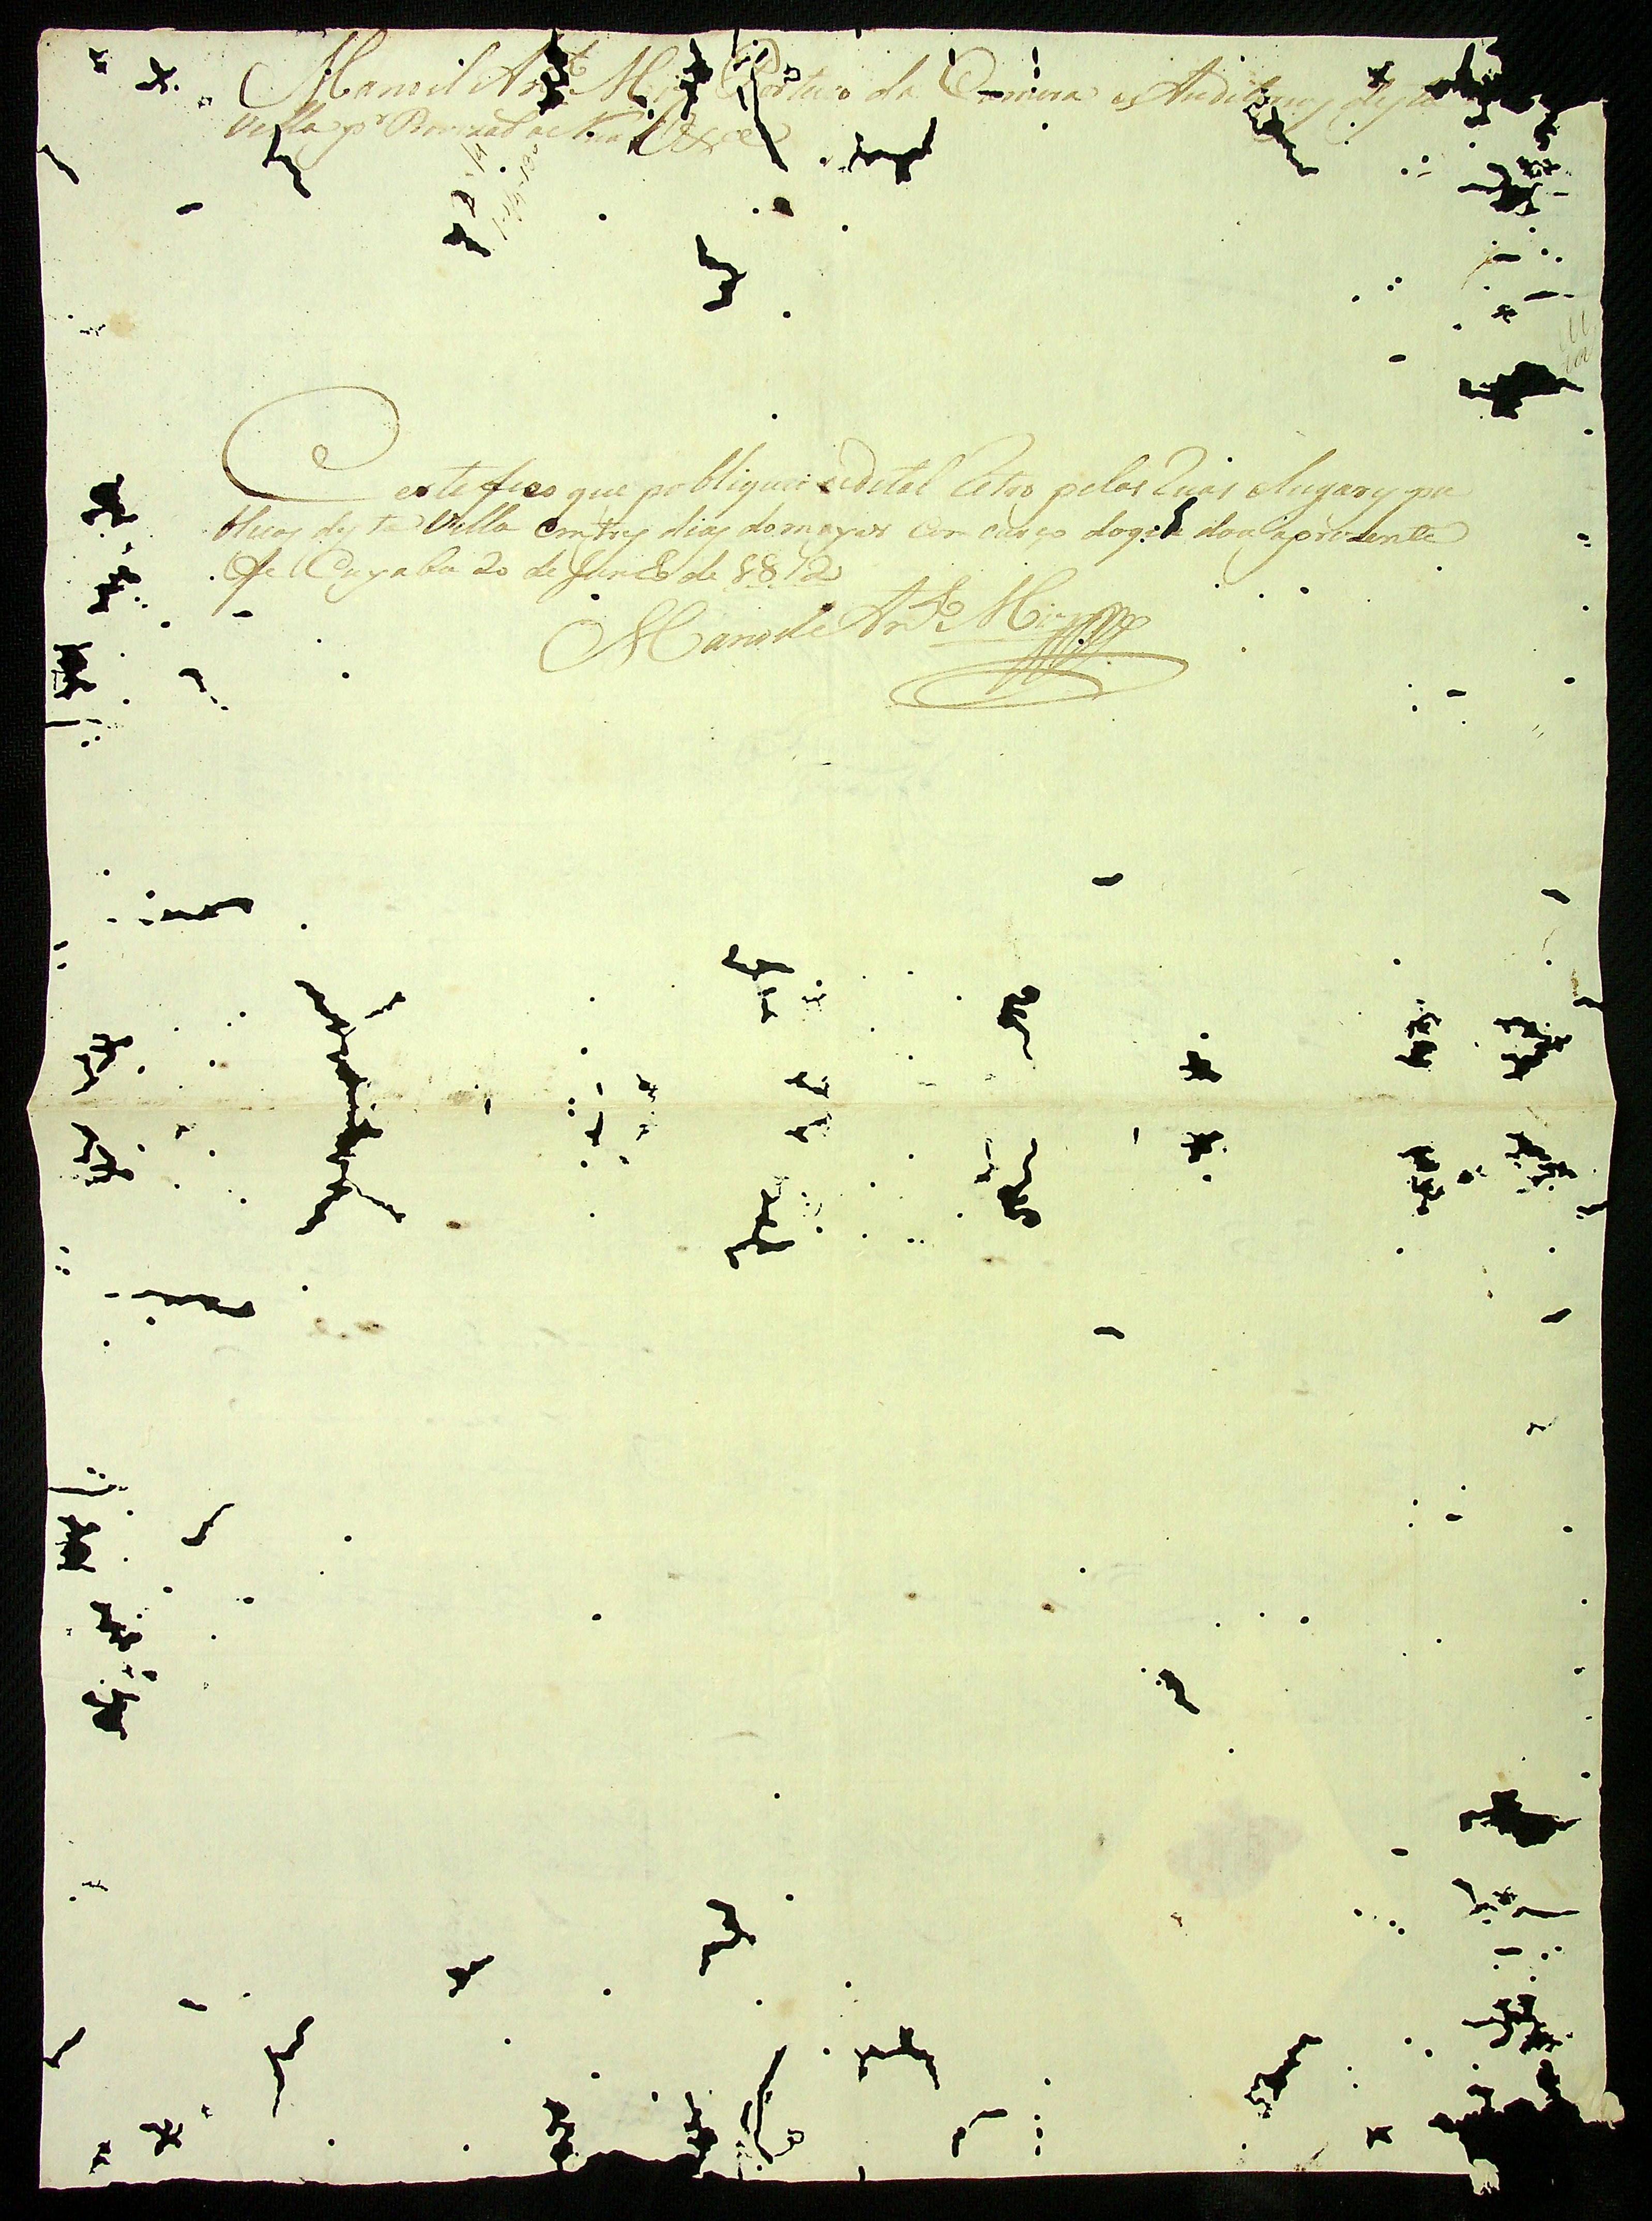 Manoil Ant.º Porteiro da Camera es Auditorios desta
Villa p.r
Certefico que pobliquei o edital Retro pelas Ruas elugares pu
blicos desta Villa em tres dias do mayor com curço doq. dou aprezente
fe Cuyaba 20 de Junho de 1812
Manoile Ant.º